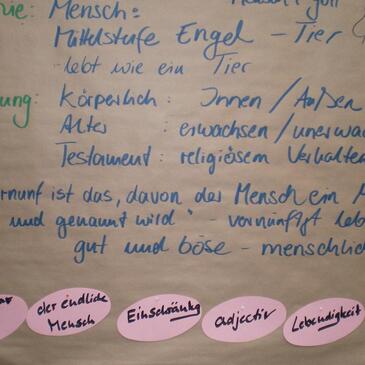 nie: Mensch:
Mittelstufe Engel – Tier
- lebt wie ein Tier
ung: Körperlich : Innen / Außen
Alter : erwachsen / unerwac
Testament : religiösem Verhalten
ernunf ist das, davon der Mensch ein M
und genannt wird" - vernünftgt leb
gut und böse - menschlich
der endliche Mensch
Einschränkung
adjectiv
Lebendigkeit